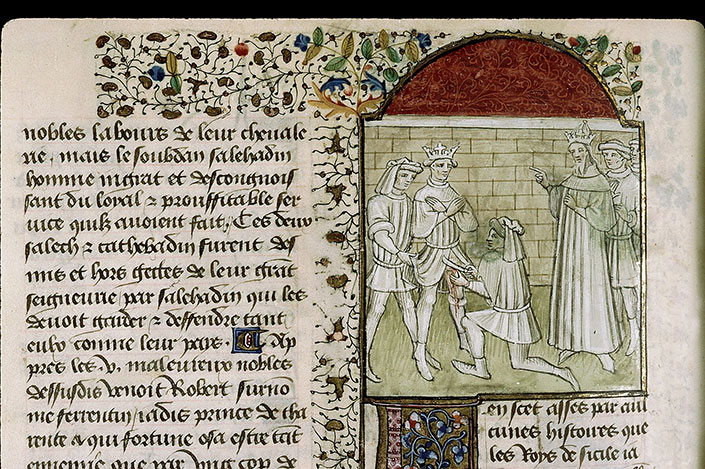 nobles labours de leur chevale
rie , mais le soubdan salehadin
homme ingrat et descongnois
sant du loyal & prouffitable ser
uice quilz auoient fait , Ces deux
salech & cathebadin furent des
mis et hors gettes de leur grāt
seigneurie par salehadin qui les
deuoit garder & deffendre tant
eulx comme leur pays . Ap
pres les .v. maleureux nobles
dessusdis venoit Robert surno
me ferrentin iadis prince de tha
rente a qui fortune osa estre tāt
ennemie que par vng cop de
en scet asses par aul
cunes histoires que
les Roys de sicile ia